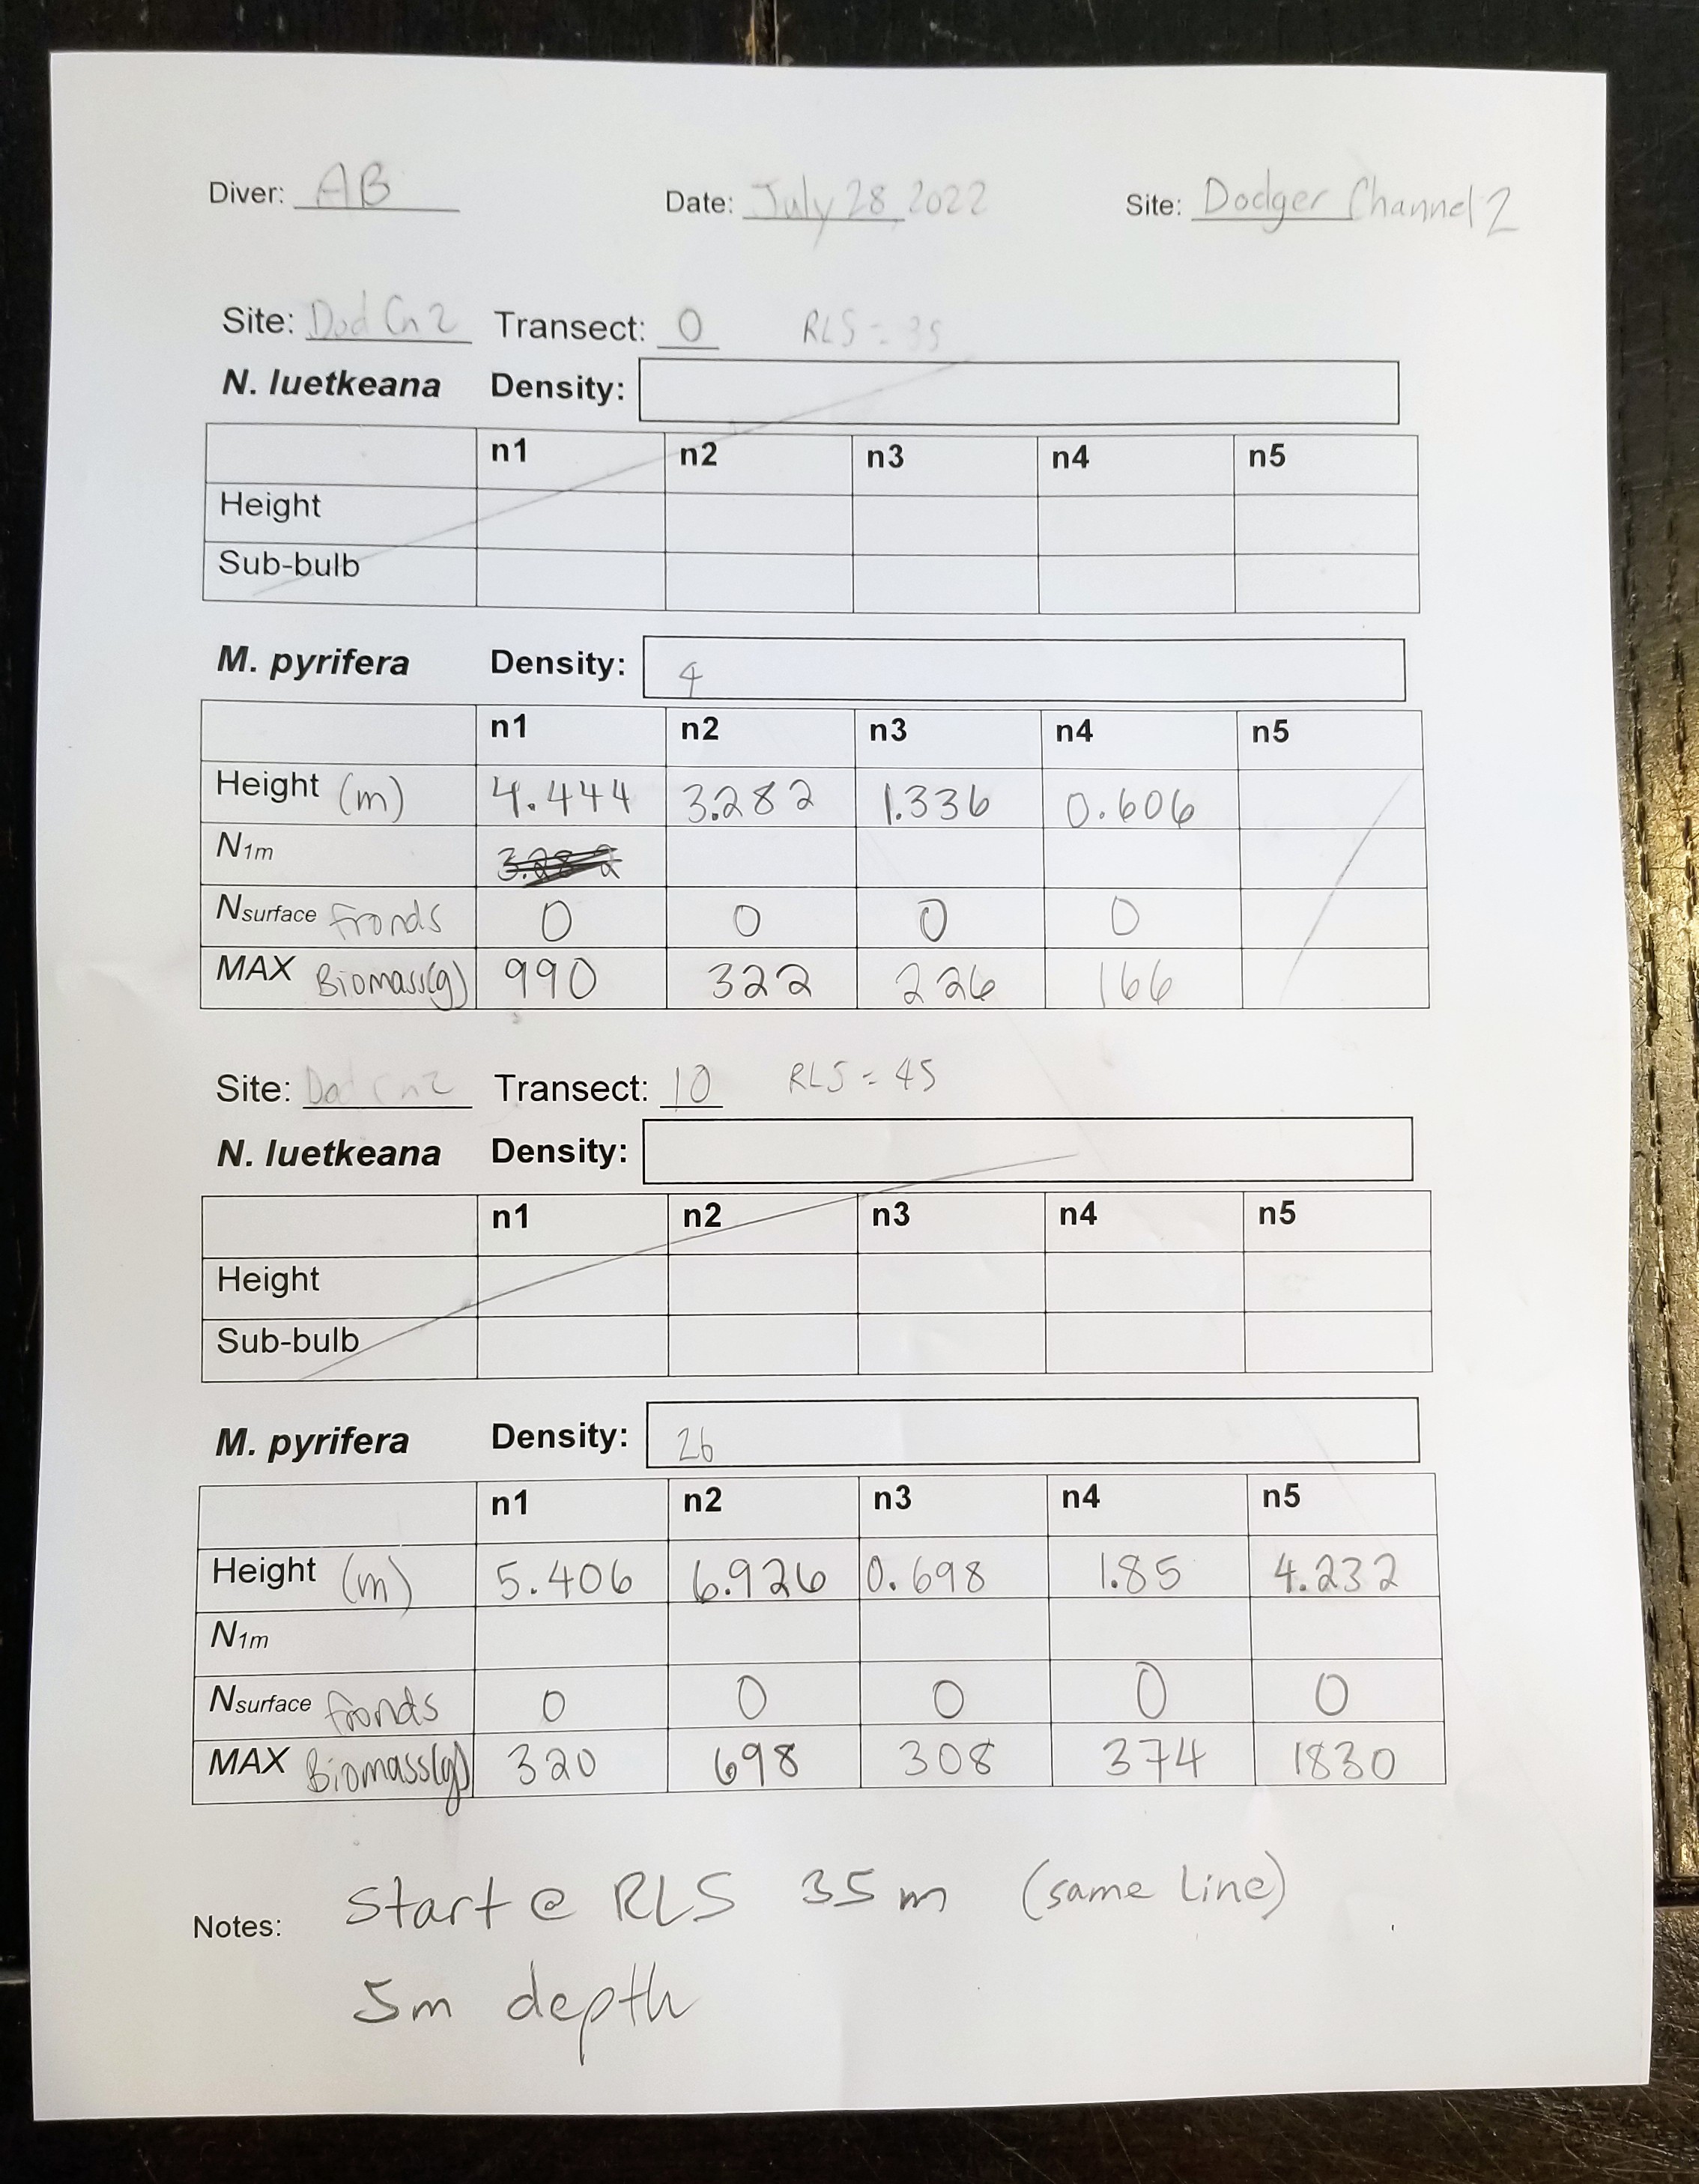 Diver: AB Date: July 28, 2022 Site: Dodger Channel 2
Site: Dod Cn 2 Transect: 0 RLS = 35
N. luetkeana Density:
n1 n2 n3 n4 n5
Height
Sub-bulb
M. pyrifera Density: 4
n1 n2 n3 n4 n5
Height (m) 4.444 3.282 1.336 0.606
N1m 3.282
Nsurface fronds 0 0 0 0
MAX Biomass(g) 990 322 226 166
Site: Dod Cn 2 Transect: 10 RLS = 45
N. luetkeana Density:
n1 n2 n3 n4 n5
Height
Sub-bulb
M. pyrifera Density: 26
n1 n2 n3 n4 n5
Height (m) 5.406 6.926 0.698 1.85 4.232
N1m
Nsurface fronds 0 0 0 0 0
MAX Biomass(g) 320 698 308 374 1830
Notes: Start @ RLS 35 m (same line)
5m depth